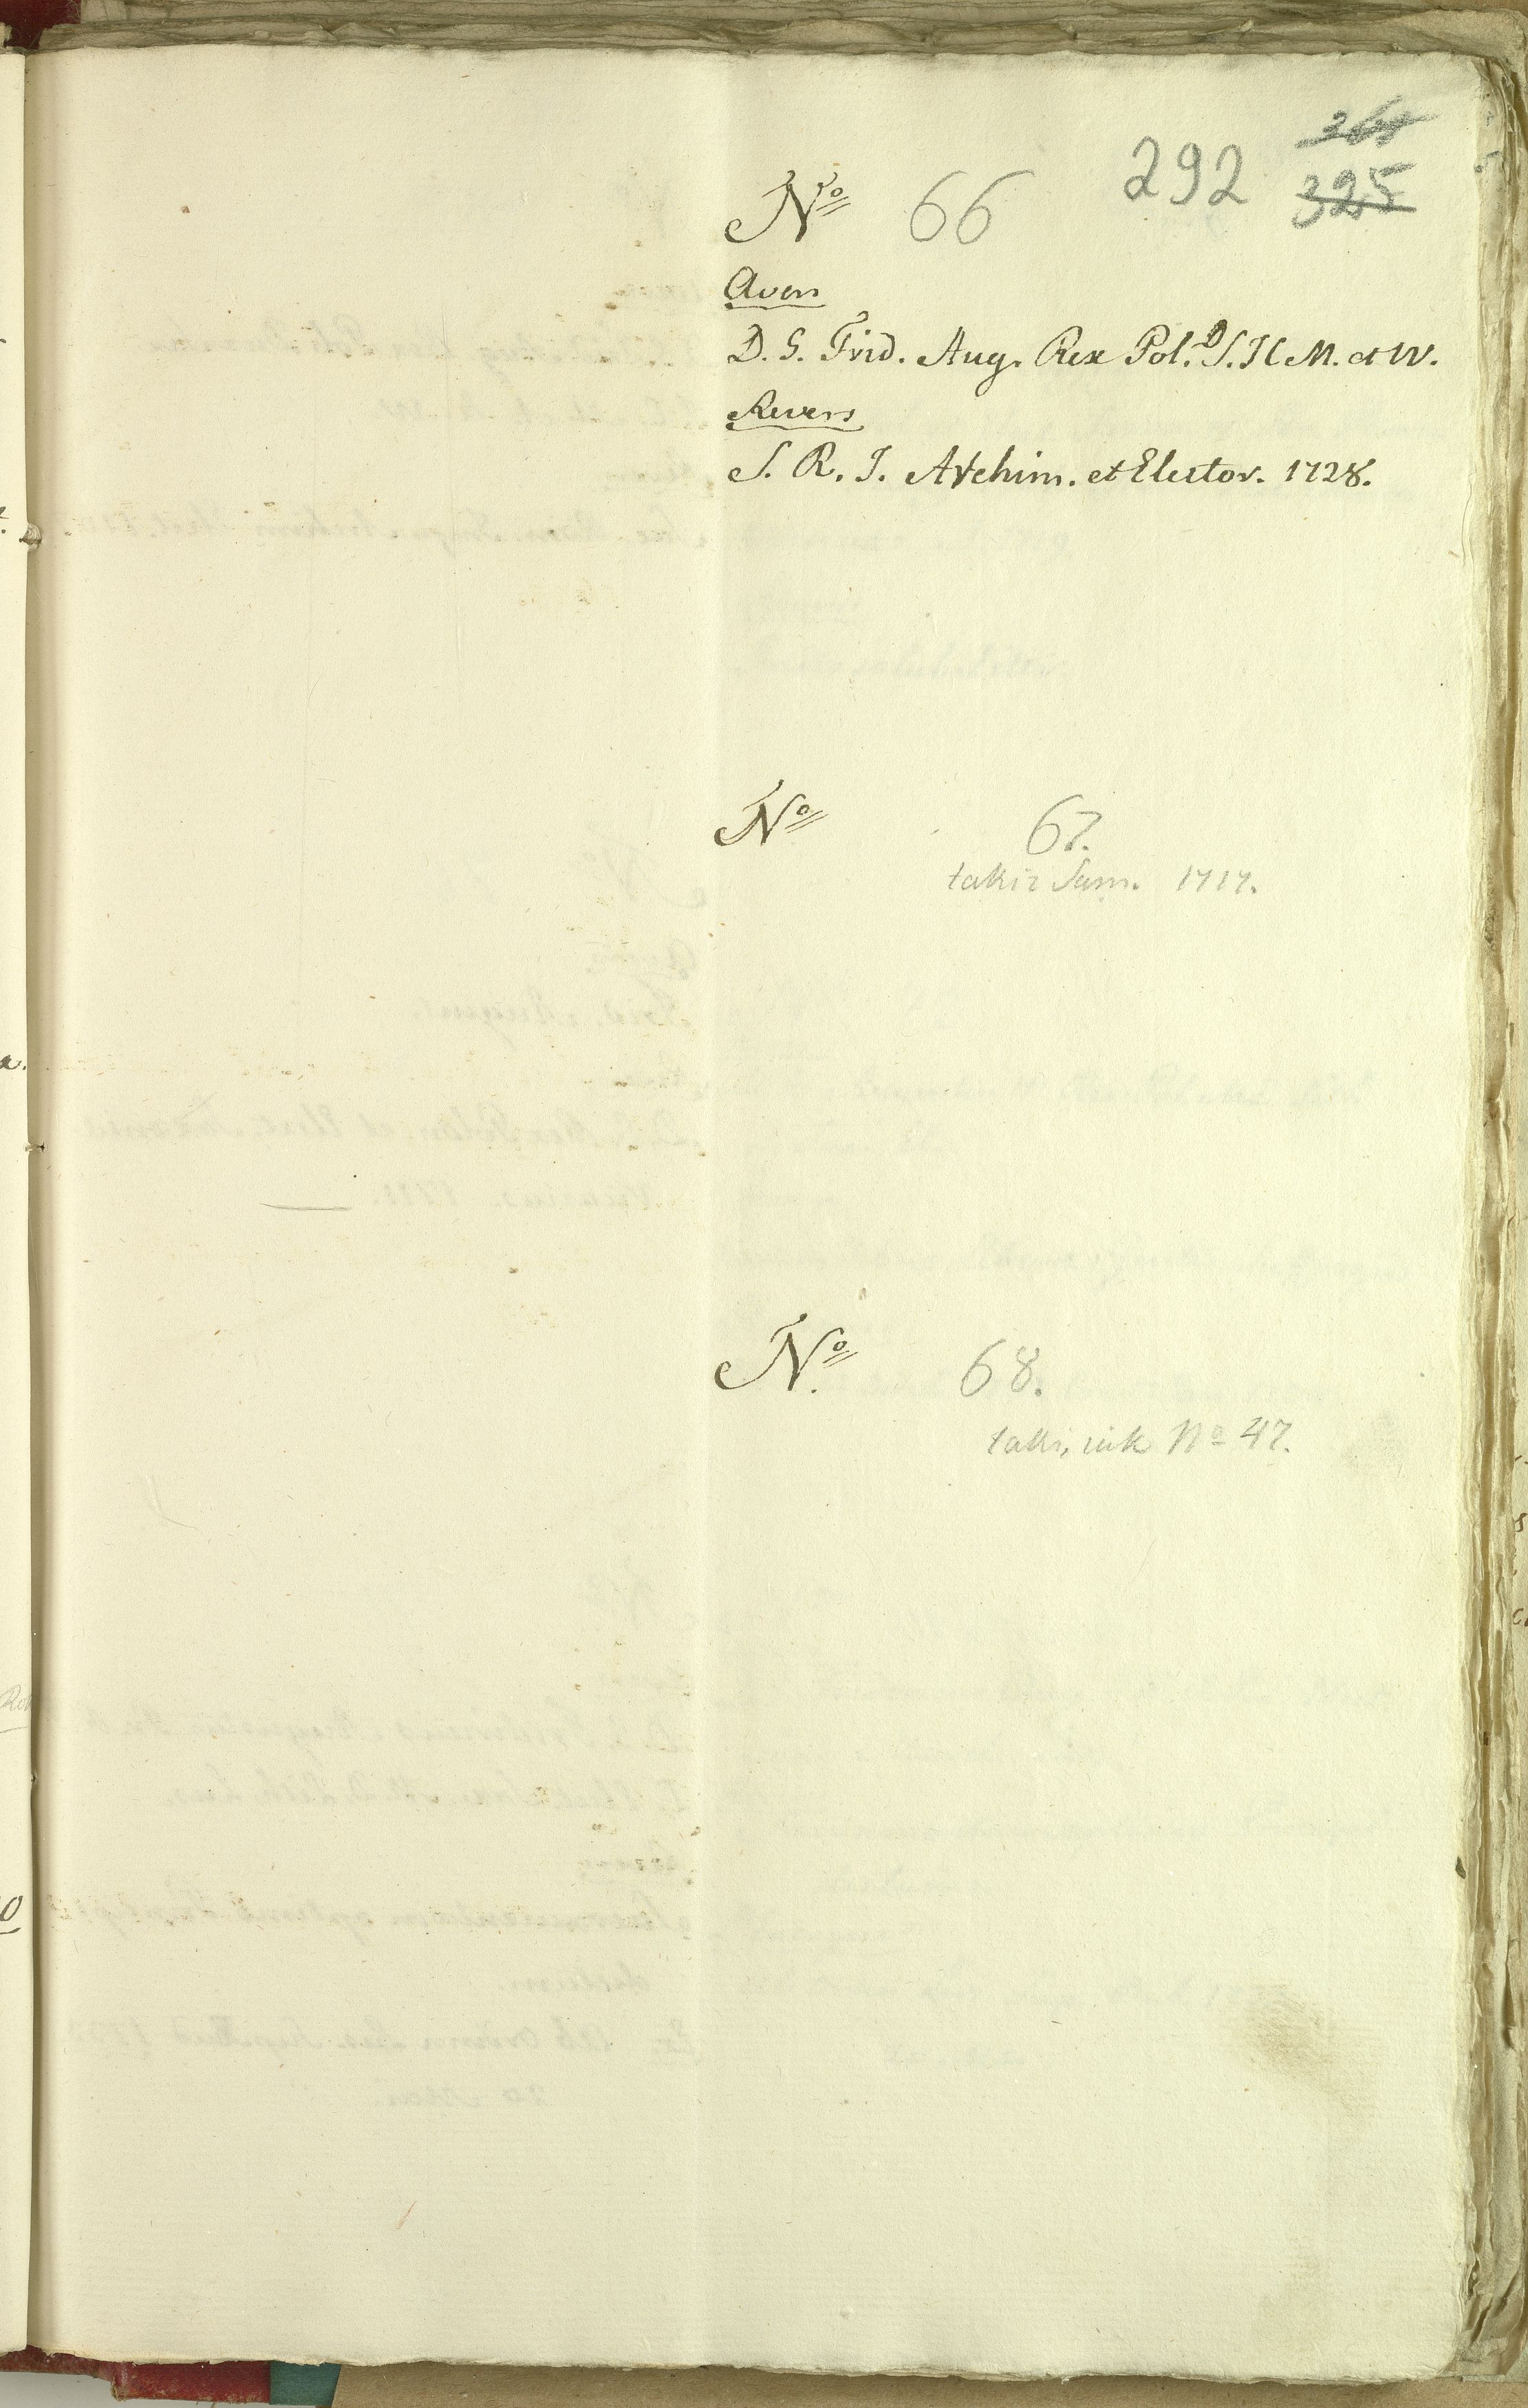 292
325
Nº 66
Avers
D. G. Frid. Aug. Rex Pol. D S. I C M. et W.
Revers
S. R. I. Archim. et Elector. 1728.
Nº 67.
takiż Sam. 1717.
Nº 68.
taki, iak Nº 47.